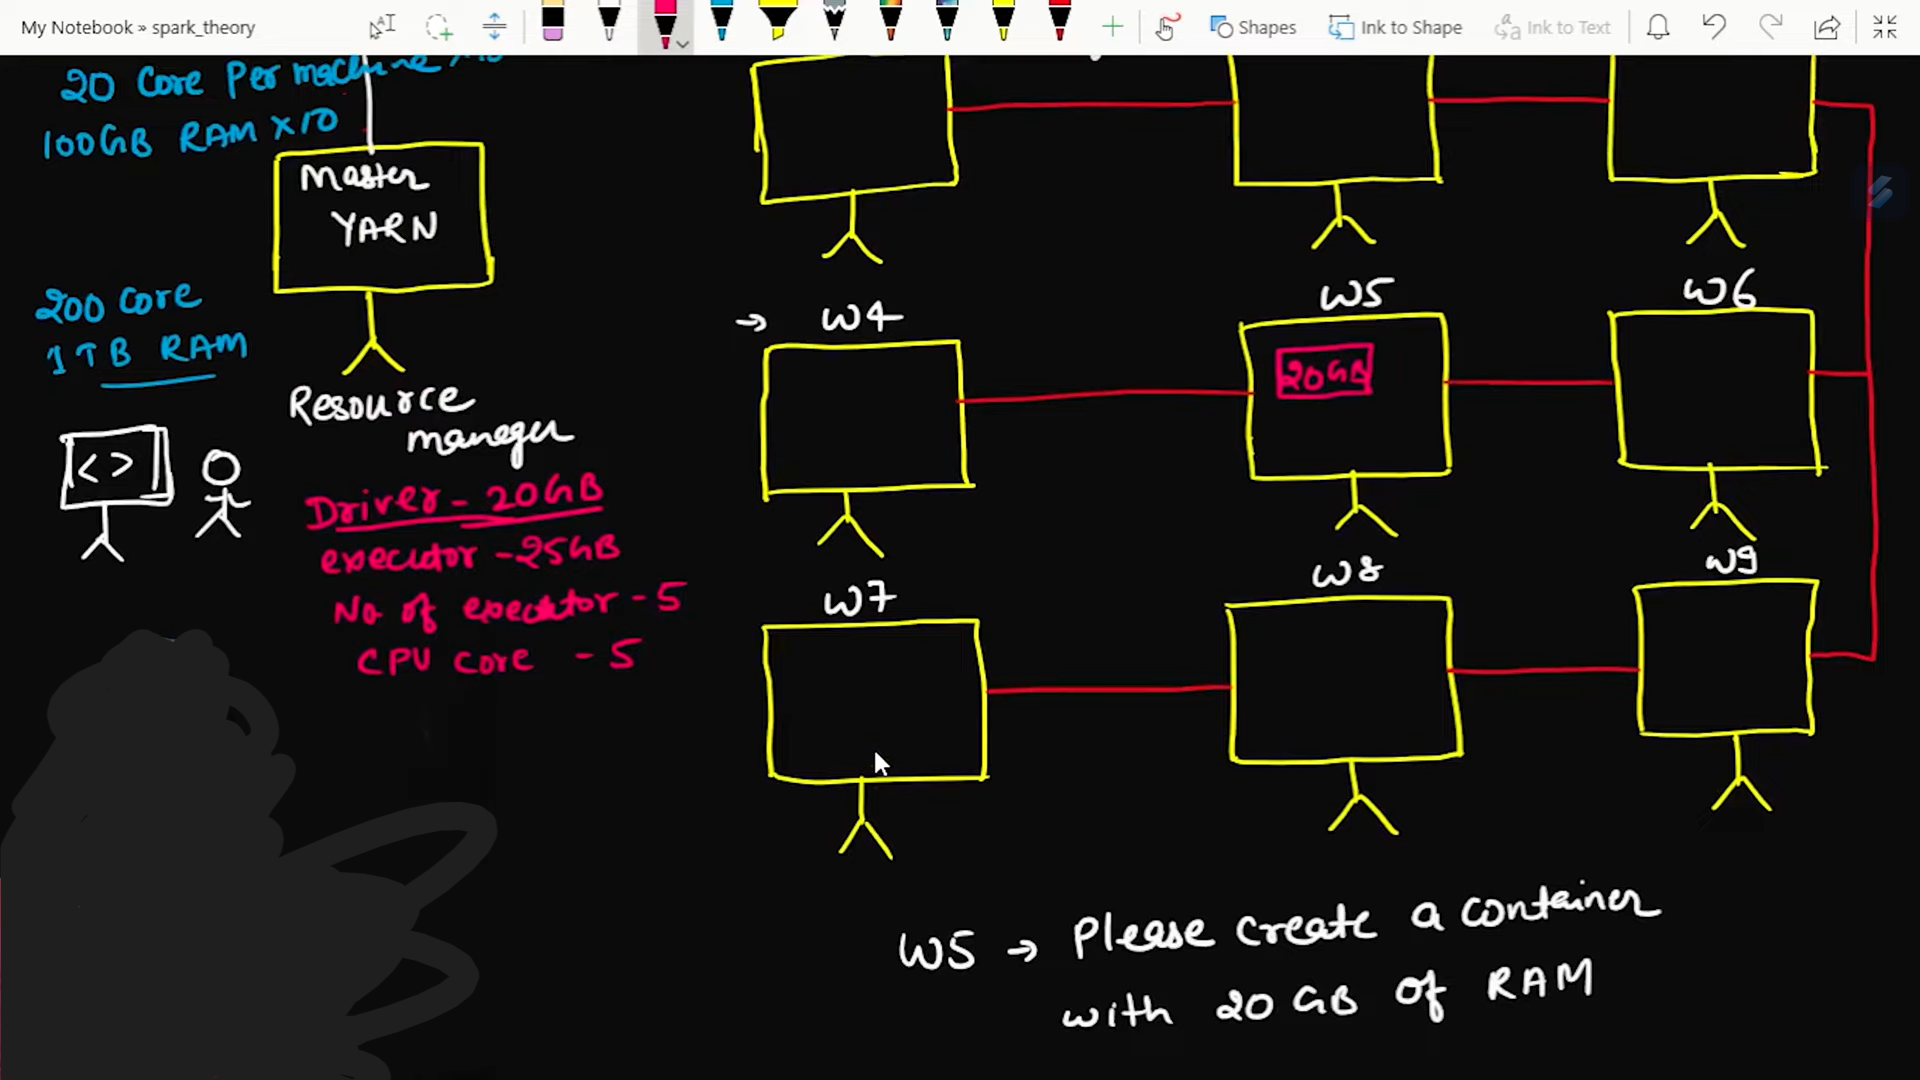 My Notebook » spark_theory
Shapes
Ink to Shape
Ink to Text
20 Core Per machine
100GB RAM x 10
Master
YARN
200 Core
1TB RAM
Resource
maneger
< >
Driver - 20GB
executor - 25GB
No of executor - 5
CPU core - 5
→ W4
W5
W6
20GB
W7
W8
W9
W5 → Please create a container
with 20 GB of RAM